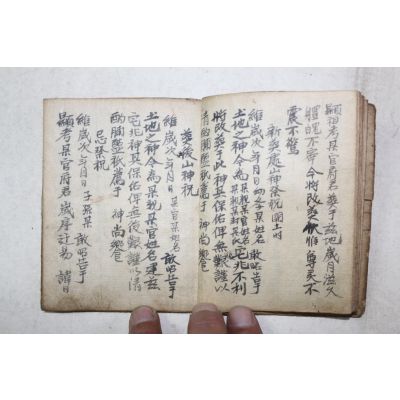 顯祖考某官府君 葬于玆地 歲月滋久
體魄不寧 今將改葬 伏惟 尊灵 不
震不驚
新葬處山神祭祝 開土時
維歲次年月日 幼學某姓名 敢昭告于
土地之神 今爲某親某官 宅兆不利
將改葬于此 神其保佑 俾無後艱 謹以
清酌脯醢 祗薦于 神 尙饗
葬後山神祝
維歲次年月日 某官某姓名 敢昭告于
土地之神 今爲某親某官姓名 建玆
宅兆 神其保佑 俾無後艱 謹以清
酌脯醢 祗薦于 神 尙饗
忌祭祝
維歲次年月日 子孫某 敢昭告于
顯考某官府君 歲序迁易 諱日